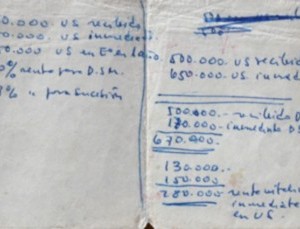 0.000 US recibido
0.000 US inmedia
0.000 US en
0% neto para D.S.M.
% " para Sucesión
500.000 US recibid
650.000 US inmed
500.000 recibido D
170.000 inmediato D.S
670.000
130.000
150.000
280.000 renta vitalic
inmediata
en US.